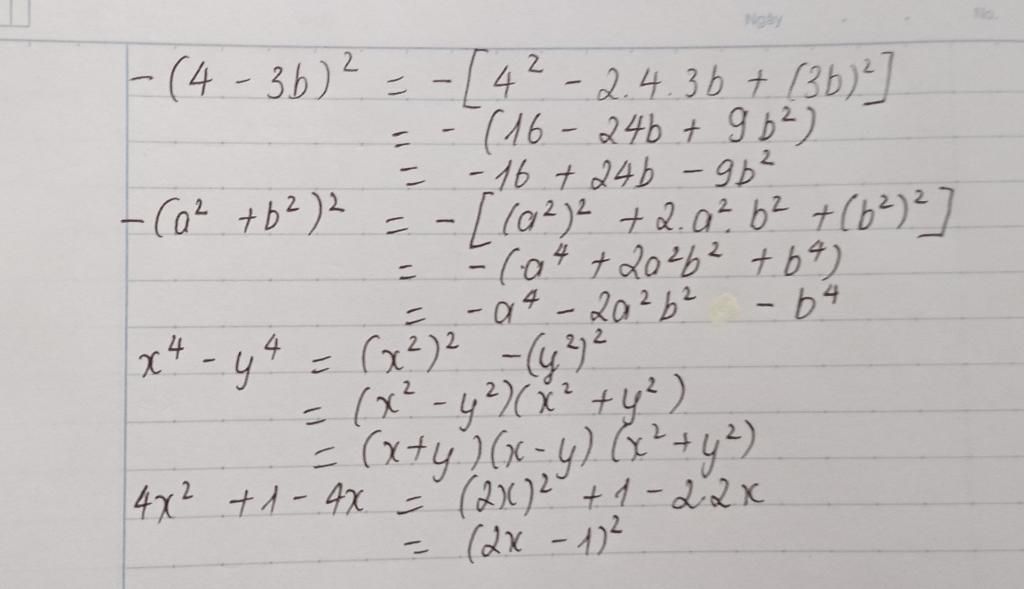 Ngày No.
-(4 - 3b)² = -[4² - 2.4.3b + (3b)²]
= - (16 - 24b + 9b²)
= -16 + 24b - 9b²
-(a² + b²)² = -[(a²)² + 2.a².b² + (b²)²]
= -(a⁴ + 2a²b² + b⁴)
= -a⁴ - 2a²b² - b⁴
x⁴ - y⁴ = (x²)² - (y²)²
= (x² - y²)(x² + y²)
= (x+y)(x-y)(x²+y²)
4x² + 1 - 4x = (2x)² + 1 - 2.2x
= (2x - 1)²